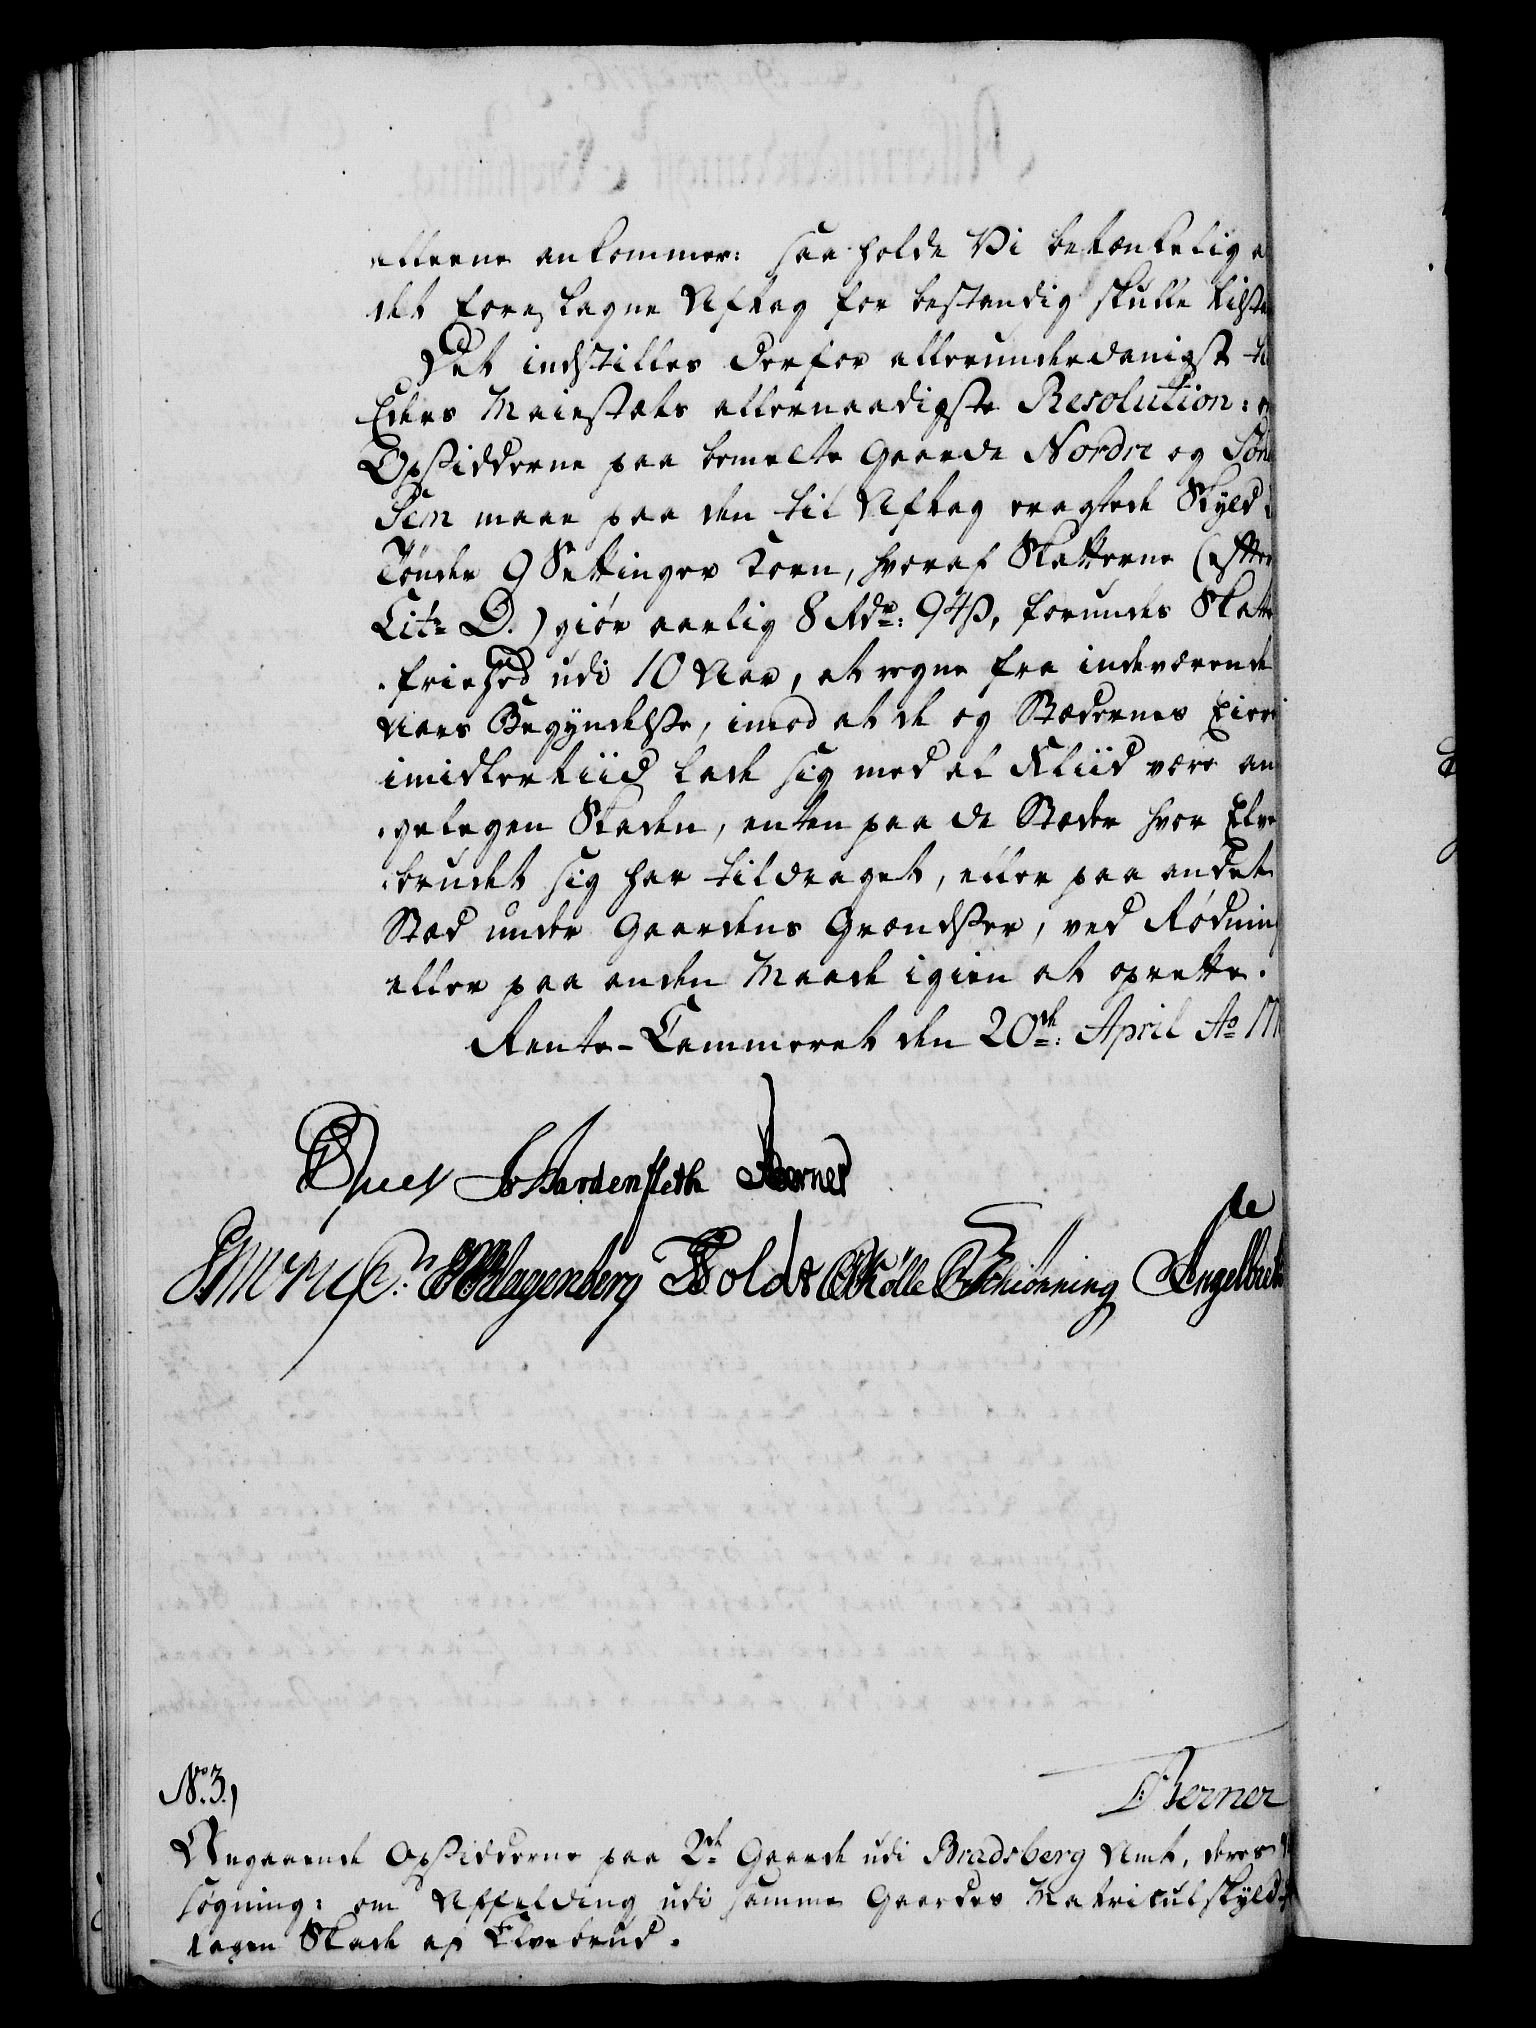 atterne ankommer: saa holde Vi betænkelig a
det foreslagne Aftag for bestandig skulle tilsta
Det indstilles derfor allerunderdanigst t
Eders Maiestæts allernaadigste Resolution:
Opsidderne paa bemelte Gaarde Nordre og Sön
Sem maae paa den til Aftag eragtede Skyld
Tønder 9 Settinger Korn, hvoraf Skatterne (efter
Litr D.) giör aarlig 8 Rdr: 94 ß, forundes Skatte
friehed udi 10 Aar, at regne fra indeværende
Aars Begyndelse, imod at de og Stædernes Eier
imidlertiid lade sig med al Fliid være an
gelegen Skaden, enten paa de Stæder hvor Elve
brudet sig har tildraget, eller paa andet
Stæd under Gaardens Grændser, ved Rødning
eller paa anden Maade igien at oprette.
Rente-Cammeret den 20de: April Ao 17
JvHardenfleth Berner
Klagenberg Holdt Kölle Schiönning Engelbret
No. 3,)
Berner
Angaaende Opsidderne paa 2de Gaarde udi Bradsberg Amt, deres
søgning: om Affelding udi samme Gaardes Matriculskyld
tagen Skade af Elvebrud.